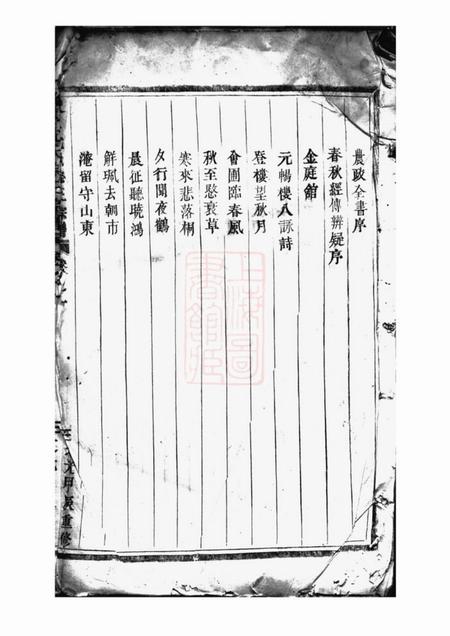 農政全書序
春秋經傳辨疑序
金庭館
元暢樓八詠詩
登樓望秋月
會圃臨春風
秋至愍衰草
寒來悲落桐
夕行聞夜鶴
晨征聽曉鴻
解珮去朝市
淹留守山東
上海圖書館藏
甲辰重修